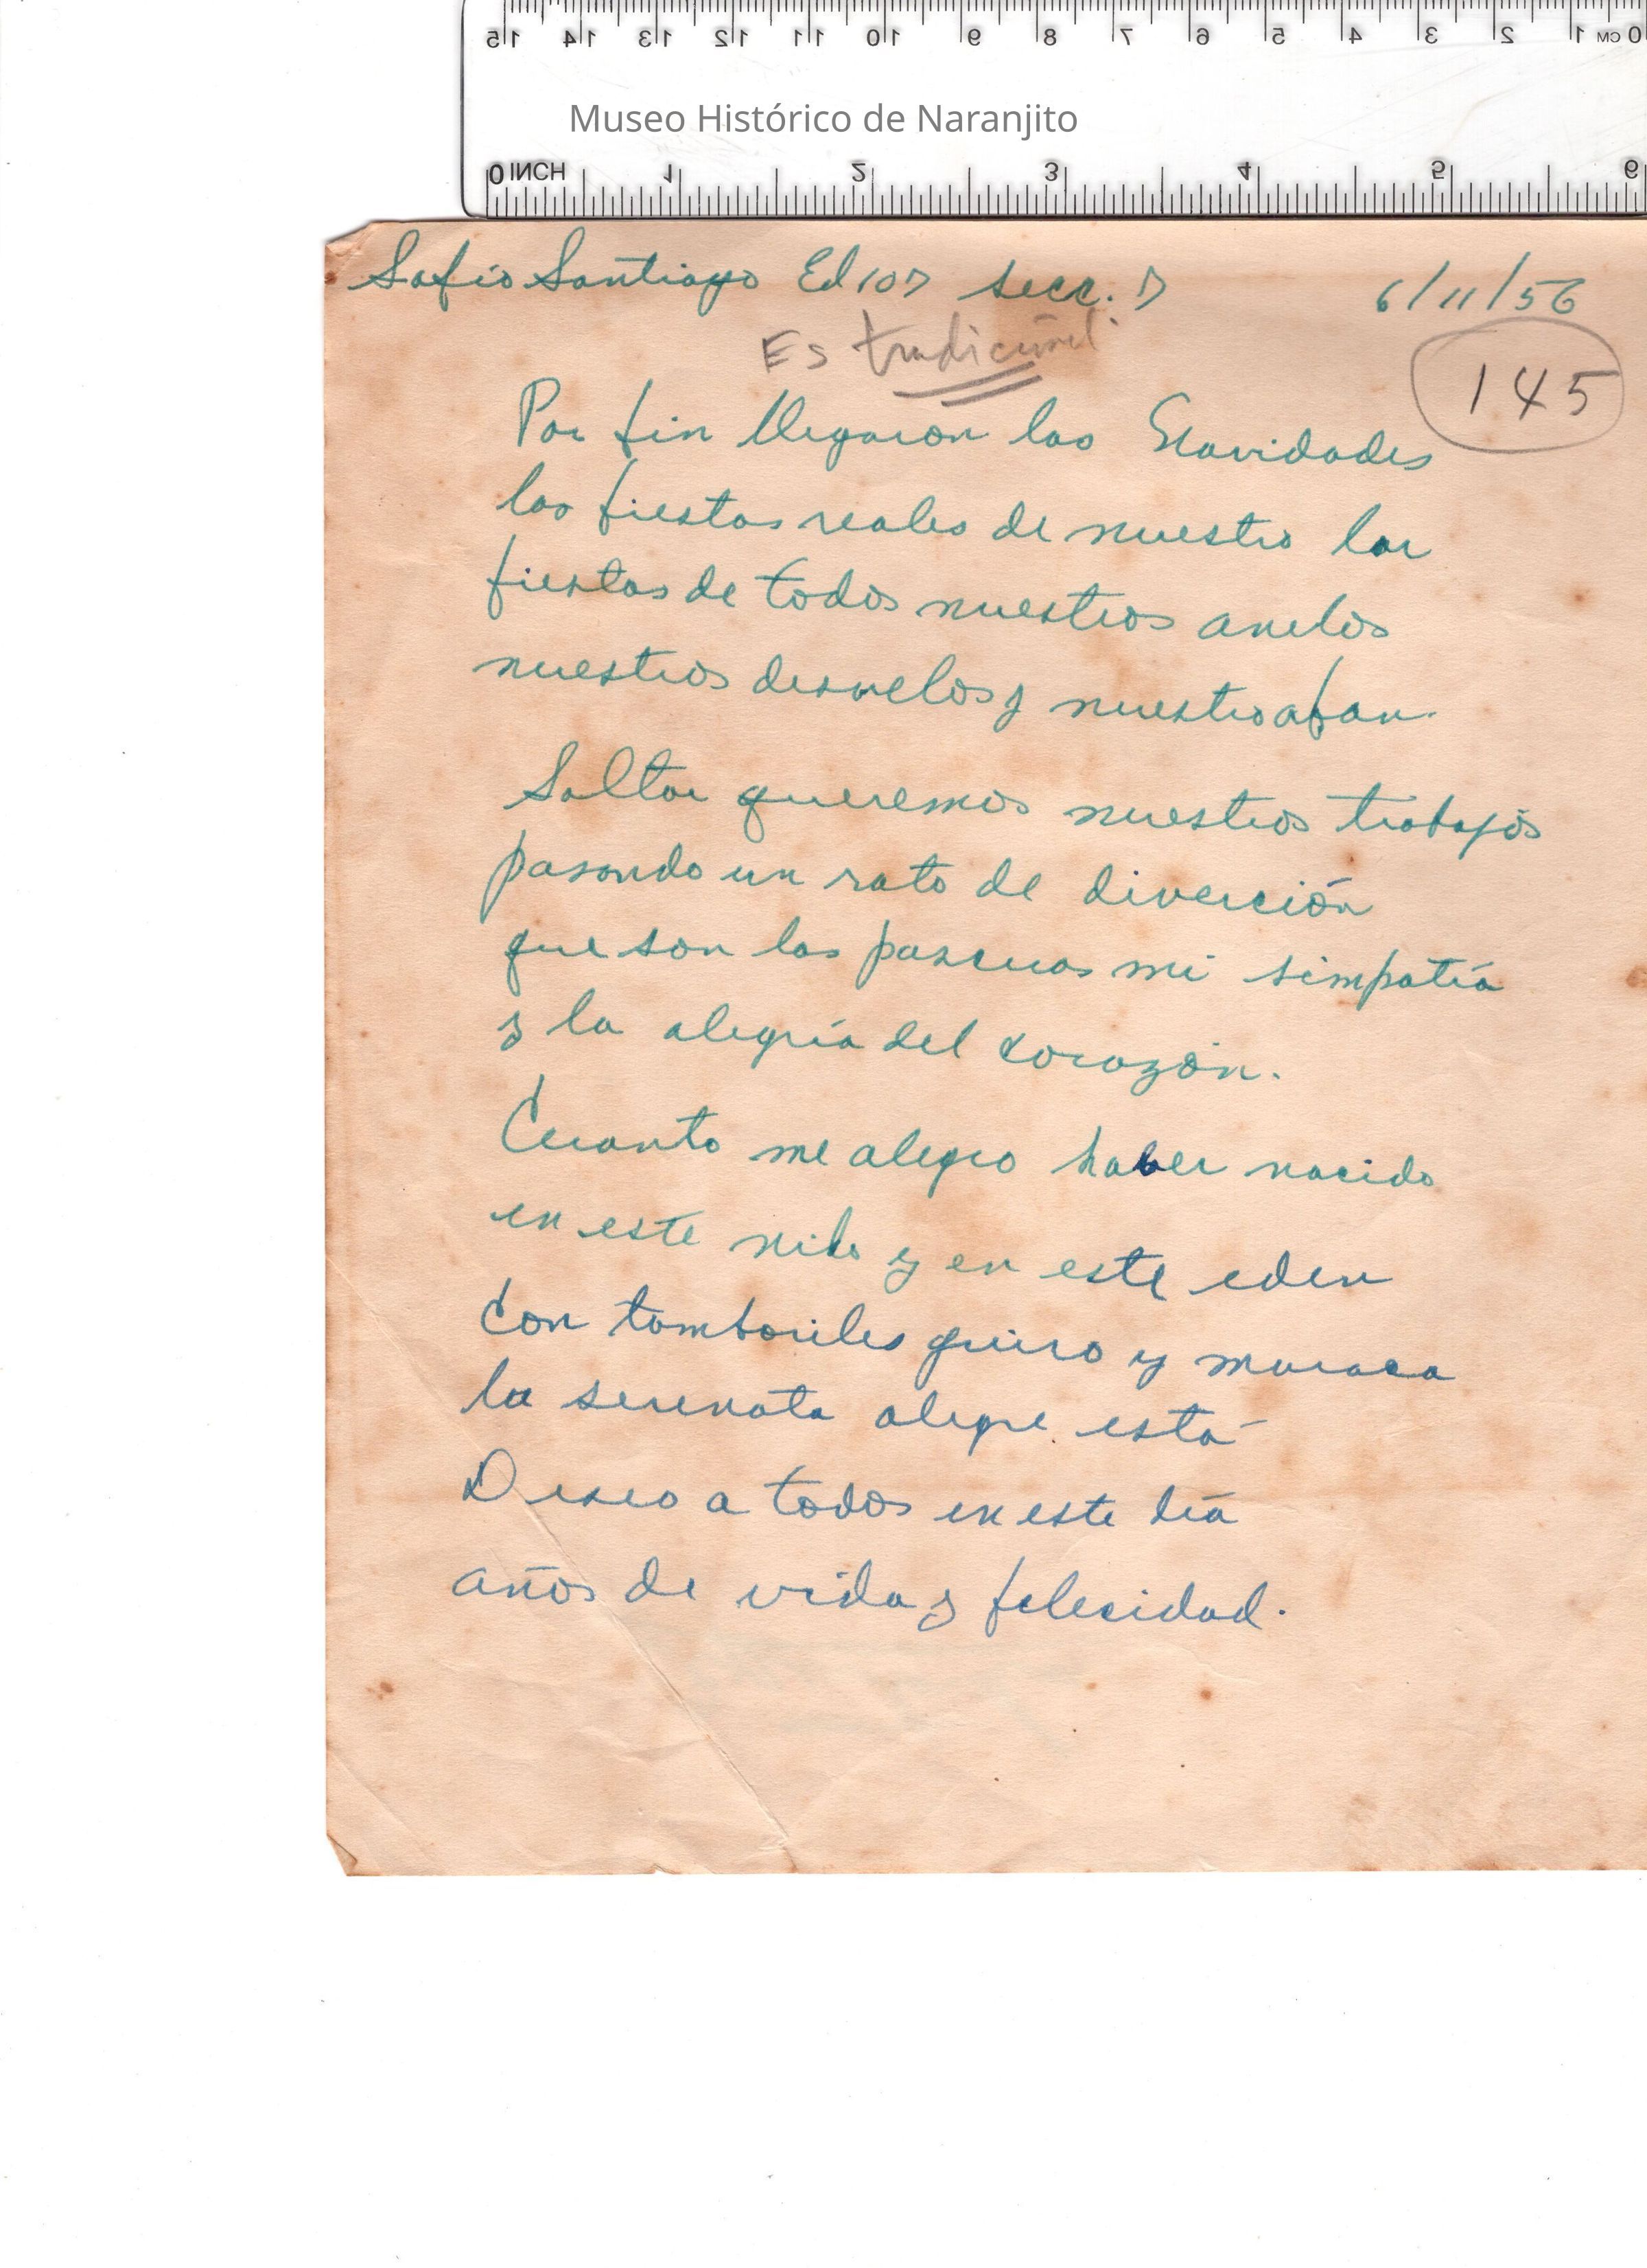 15 14 13 12 11 10 9 8 7 6 5 4 3 2 1 CM 0
Museo Histórico de Naranjito
0 INCH 1 2 3 4 5 6
Safío Santiago Ed 107 secc. D 6/11/56
Es tradicional
145
Por fin llegaron las Navidades
las fiestas reales de nuestro lar
fiestas de todos nuestros anelos
nuestros desvelos y nuestro afan.
Soltar queremos nuestros trabajos
pasando un rato de diverción
que son las pascuas mi simpatía
y la alegría del corazón.
Cuanto me alegro haber nacido
en este nido y en este eden
con tamboriles guiro y maraca
la serenata alegre está
Deseo a todos en este día
años de vida y felecidad.